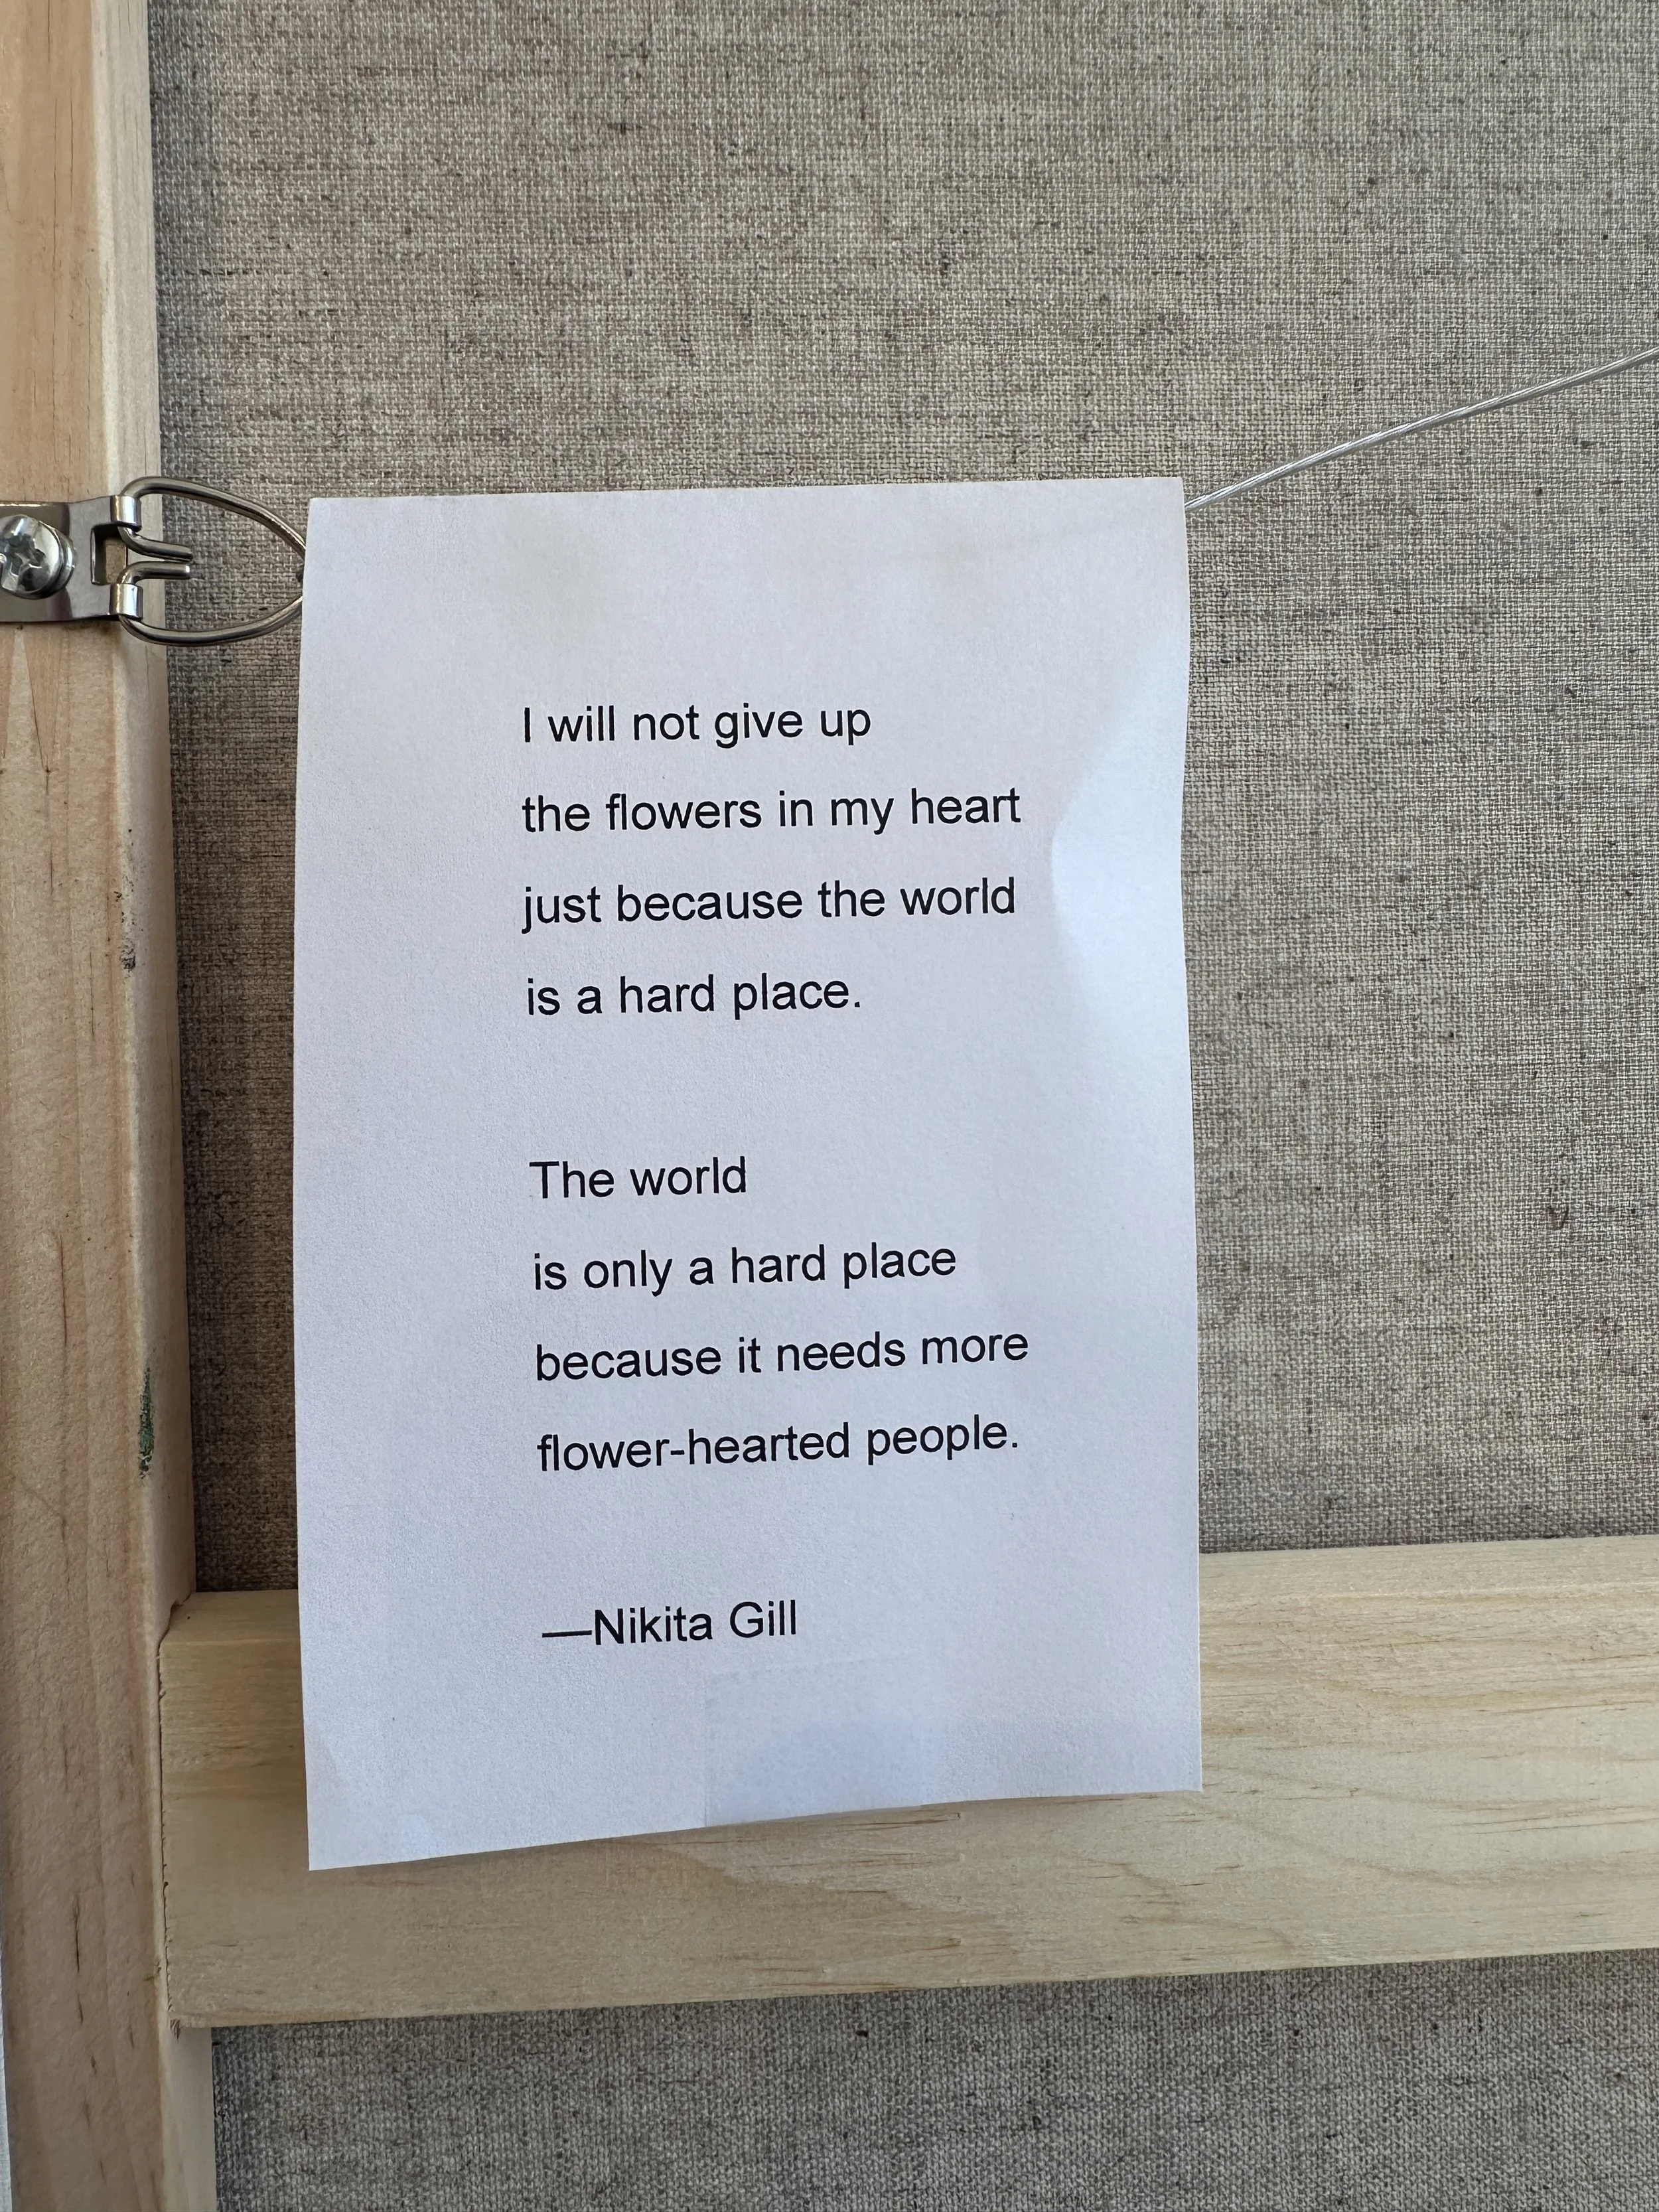 I will not give up
the flowers in my heart
just because the world
is a hard place.
The world
is only a hard place
because it needs more
flower-hearted people.
—Nikita Gill